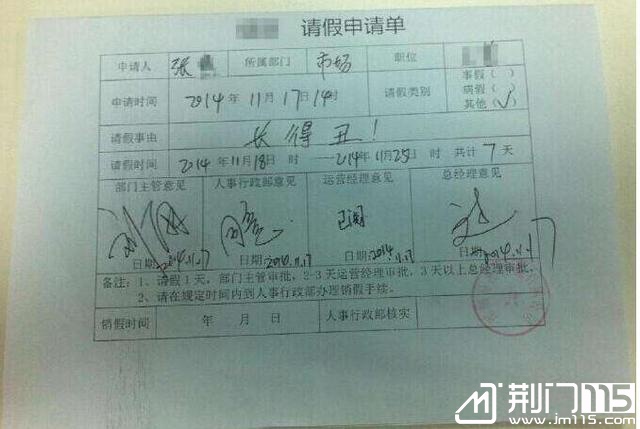 请假申请单
申请人 张 所属部门 市场 职位
申请时间 2014年11月17日14时 请假类别 事假( )
病假( )
其他(√)
请假事由 长得丑!
请假时间 2014年11月18日 时 — 2014年11月25日 时 共计 7 天
部门主管意见 人事行政部意见 运营经理意见 总经理意见
同意 已阅
日期:2014.11.17 日期:2014.11.17 日期:2014.11.17 日期:2014.11.17
备注:1、请假1天,部门主管审批,2-3天运营经理审批,3天以上总经理审批。
2、请在规定时间内到人事行政部办理销假手续。
销假时间 年 月 日 人事行政部核实
荆门115
www.jm115.com